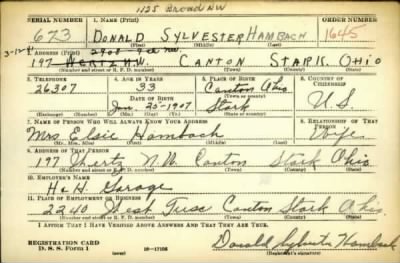 1125 Broad NW
SERIAL NUMBER 1. NAME (Print) ORDER NUMBER
673 DONALD SYLVESTER HAMBACH 1645
3-12-41 2908 9th NW.
2. ADDRESS (Print)
197 WERTZ N.W. CANTON STARK OHIO
(Number and street or R. F. D. number) (Town) (County) (State)
3. TELEPHONE 4. AGE IN YEARS 5. PLACE OF BIRTH 6. COUNTRY OF CITIZENSHIP
26307 33 Canton Ohio
DATE OF BIRTH (Town or county)
Jan. 25-1907 Stark U.S.
(Exchange) (Number) (Mo.) (Day) (Yr.) (State or country)
7. NAME OF PERSON WHO WILL ALWAYS KNOW YOUR ADDRESS 8. RELATIONSHIP OF THAT PERSON
Mrs Elsie Hambach Wife
(Mr., Mrs., Miss) (First) (Middle) (Last)
9. ADDRESS OF THAT PERSON
197 Wertz N.W. Canton Stark Ohio
(Number and street or R. F. D. number) (Town) (County) (State)
10. EMPLOYER'S NAME
H & H. Garage
11. PLACE OF EMPLOYMENT OR BUSINESS
2240 West Tusc Canton Stark Ohio.
(Number and street or R. F. D. number) (Town) (County) (State)
I AFFIRM THAT I HAVE VERIFIED ABOVE ANSWERS AND THAT THEY ARE TRUE.
REGISTRATION CARD
D. S. S. Form 1 (over) 16-17105 Donald Sylvester Hambach
(Registrant's signature)